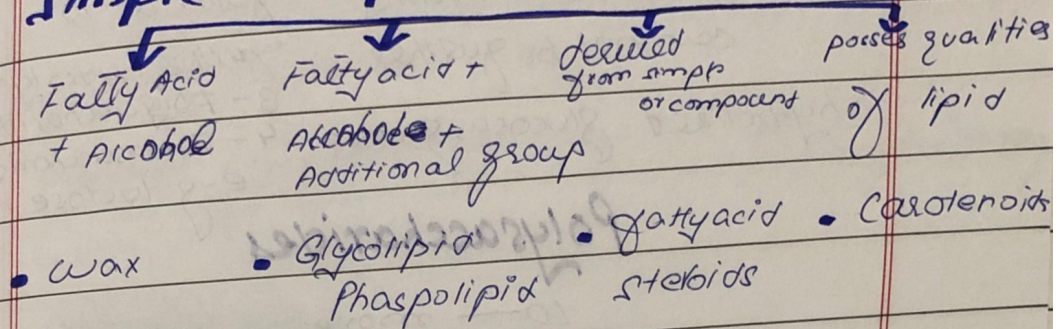 Fatty Acid
+ Alcohol
Fattyacid +
Alcohol +
Additional group
derived
from simple
or compound
posses qualities
of lipid
• wax
• Glycolipid
Phaspolipid
• fattyacid
steroids
• Carotenoids